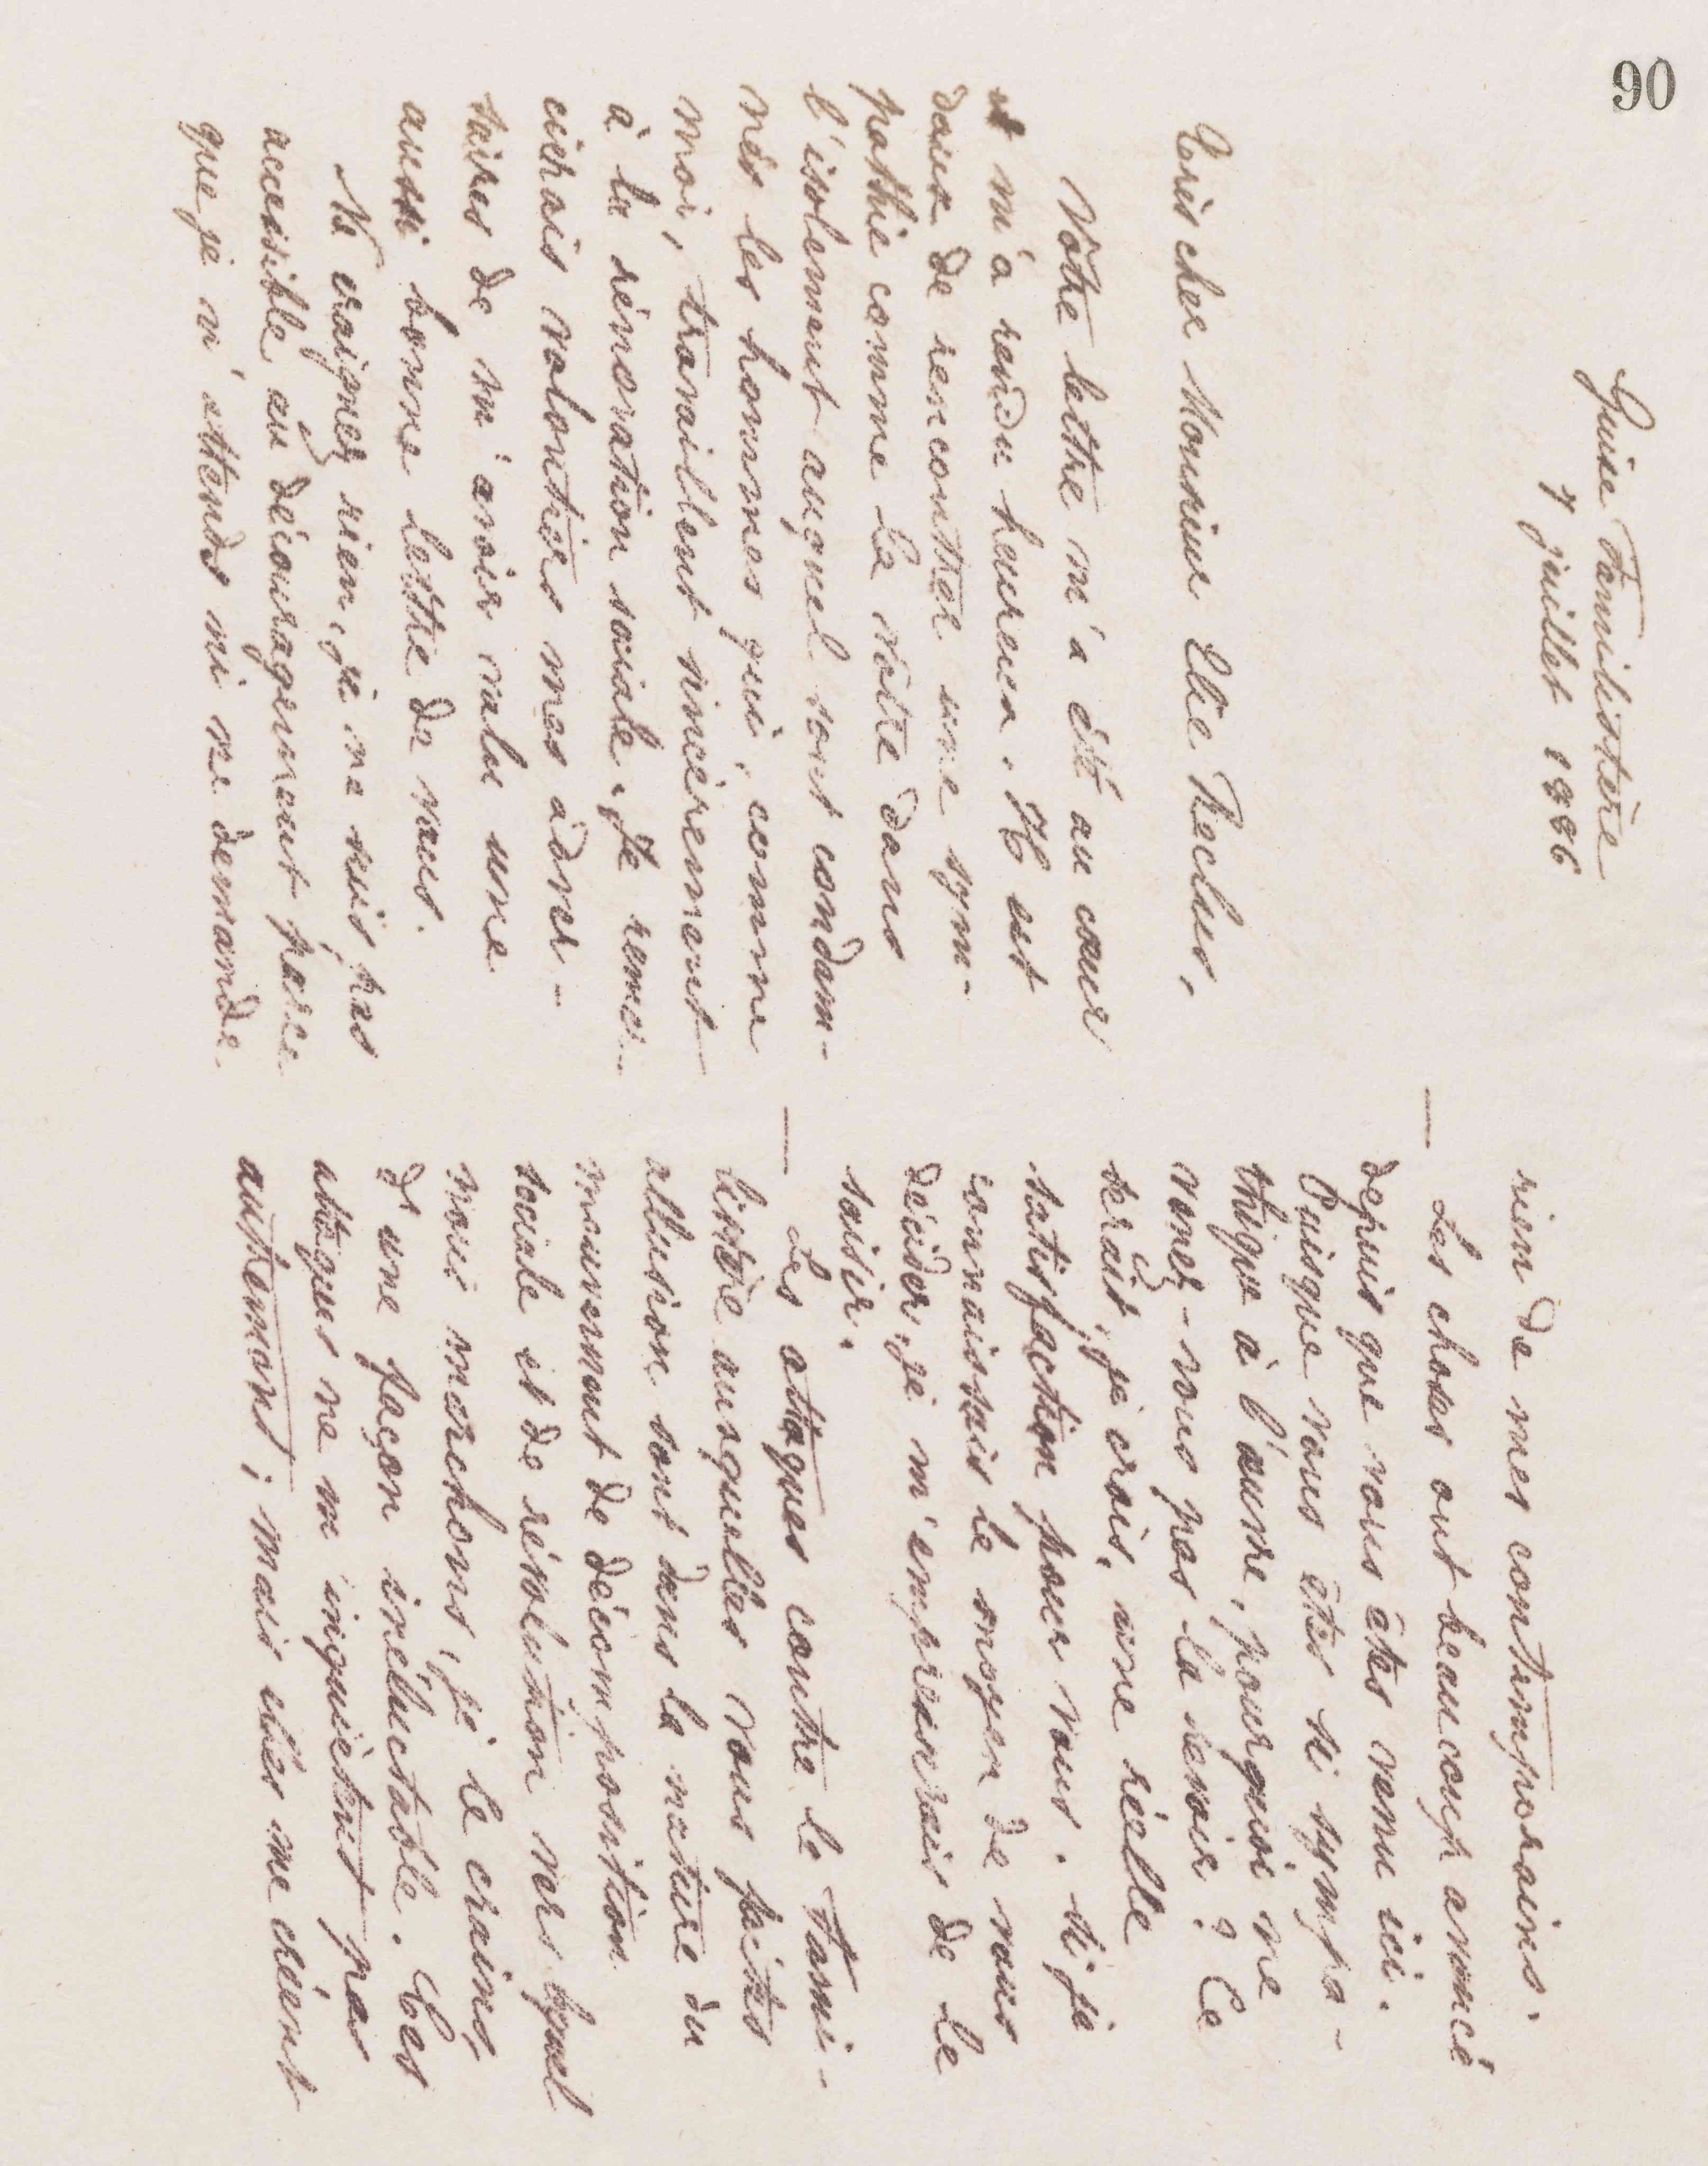 90
Guise Familistère
7 juillet 1886
Très cher Monsieur Elie Reclus,
Votre lettre m'a été au cœur
et m'a rendu heureux. Il est
doux de rencontrer une sym-
pathie comme la vôtre dans
l'isolement auquel sont condam-
nés les hommes qui, comme
moi, travaillent sincèrement
à la rénovation sociale. Je remer-
cierais volontiers mes adver-
saires de m'avoir valu une
aussi bonne lettre de vous.
Ne craignez rien, je ne suis pas
accessible au découragement parce
que je n'attends ni ne demande
rien de mes contemporains.
— Les choses ont beaucoup avancé
depuis que vous êtes venu ici.
Puisque vous êtes si sympa-
thique à l'œuvre, pourquoi ne
venez-vous pas la revoir ? Ce
serait, je crois, une réelle
satisfaction pour vous. Si je
connaissais le moyen de vous
décider, je m'empresserais de le
saisir.
— Les attaques contre le Fami-
listère auxquelles vous faites
allusion sont dans la nature du
mouvement de décomposition
sociale et de révolution vers lequel
nous marchons, je le crains,
d'une façon inéluctable. Ces
attaques ne m'inquiètent pas
autrement ; mais elles me créent